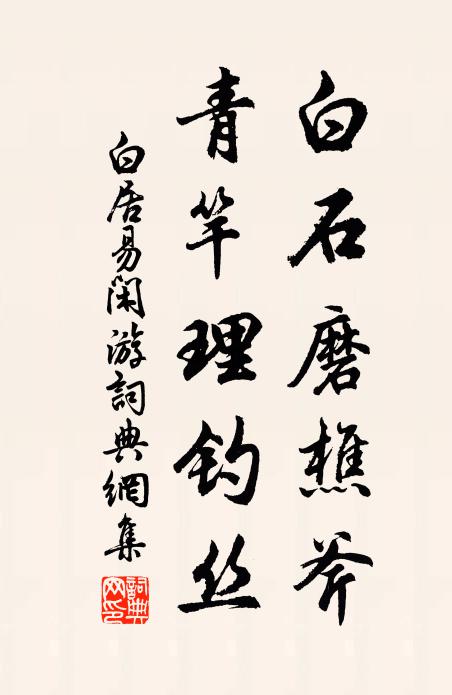 白石磨樵斧
青竿理钓丝
白居易閑游詞典網集
詞典网印